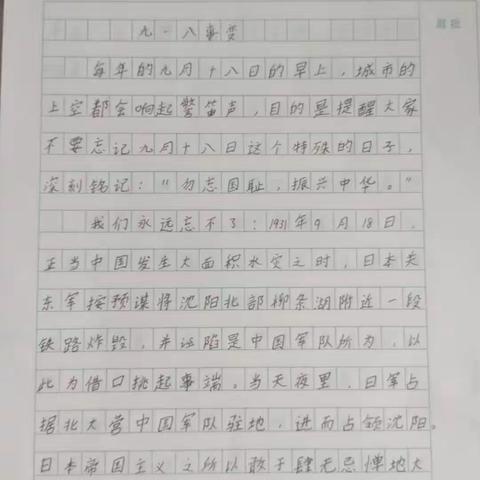 眉批
九·一八事变
每年的九月十八日的早上，城市的
上空都会响起警笛声，目的是提醒大家
不要忘记九月十八日这个特殊的日子，
深刻铭记：“勿忘国耻，振兴中华。”
我们永远忘不了：1931年9月18日，
正当中国发生大面积水灾之时，日本关
东军按预谋将沈阳北部柳条湖附近一段
铁路炸毁，并诬陷是中国军队所为，以
此为借口挑起事端。当天夜里，日军占
据北大营中国军队驻地，进而占领沈阳。
日本帝国主义之所以敢于肆无忌惮地大